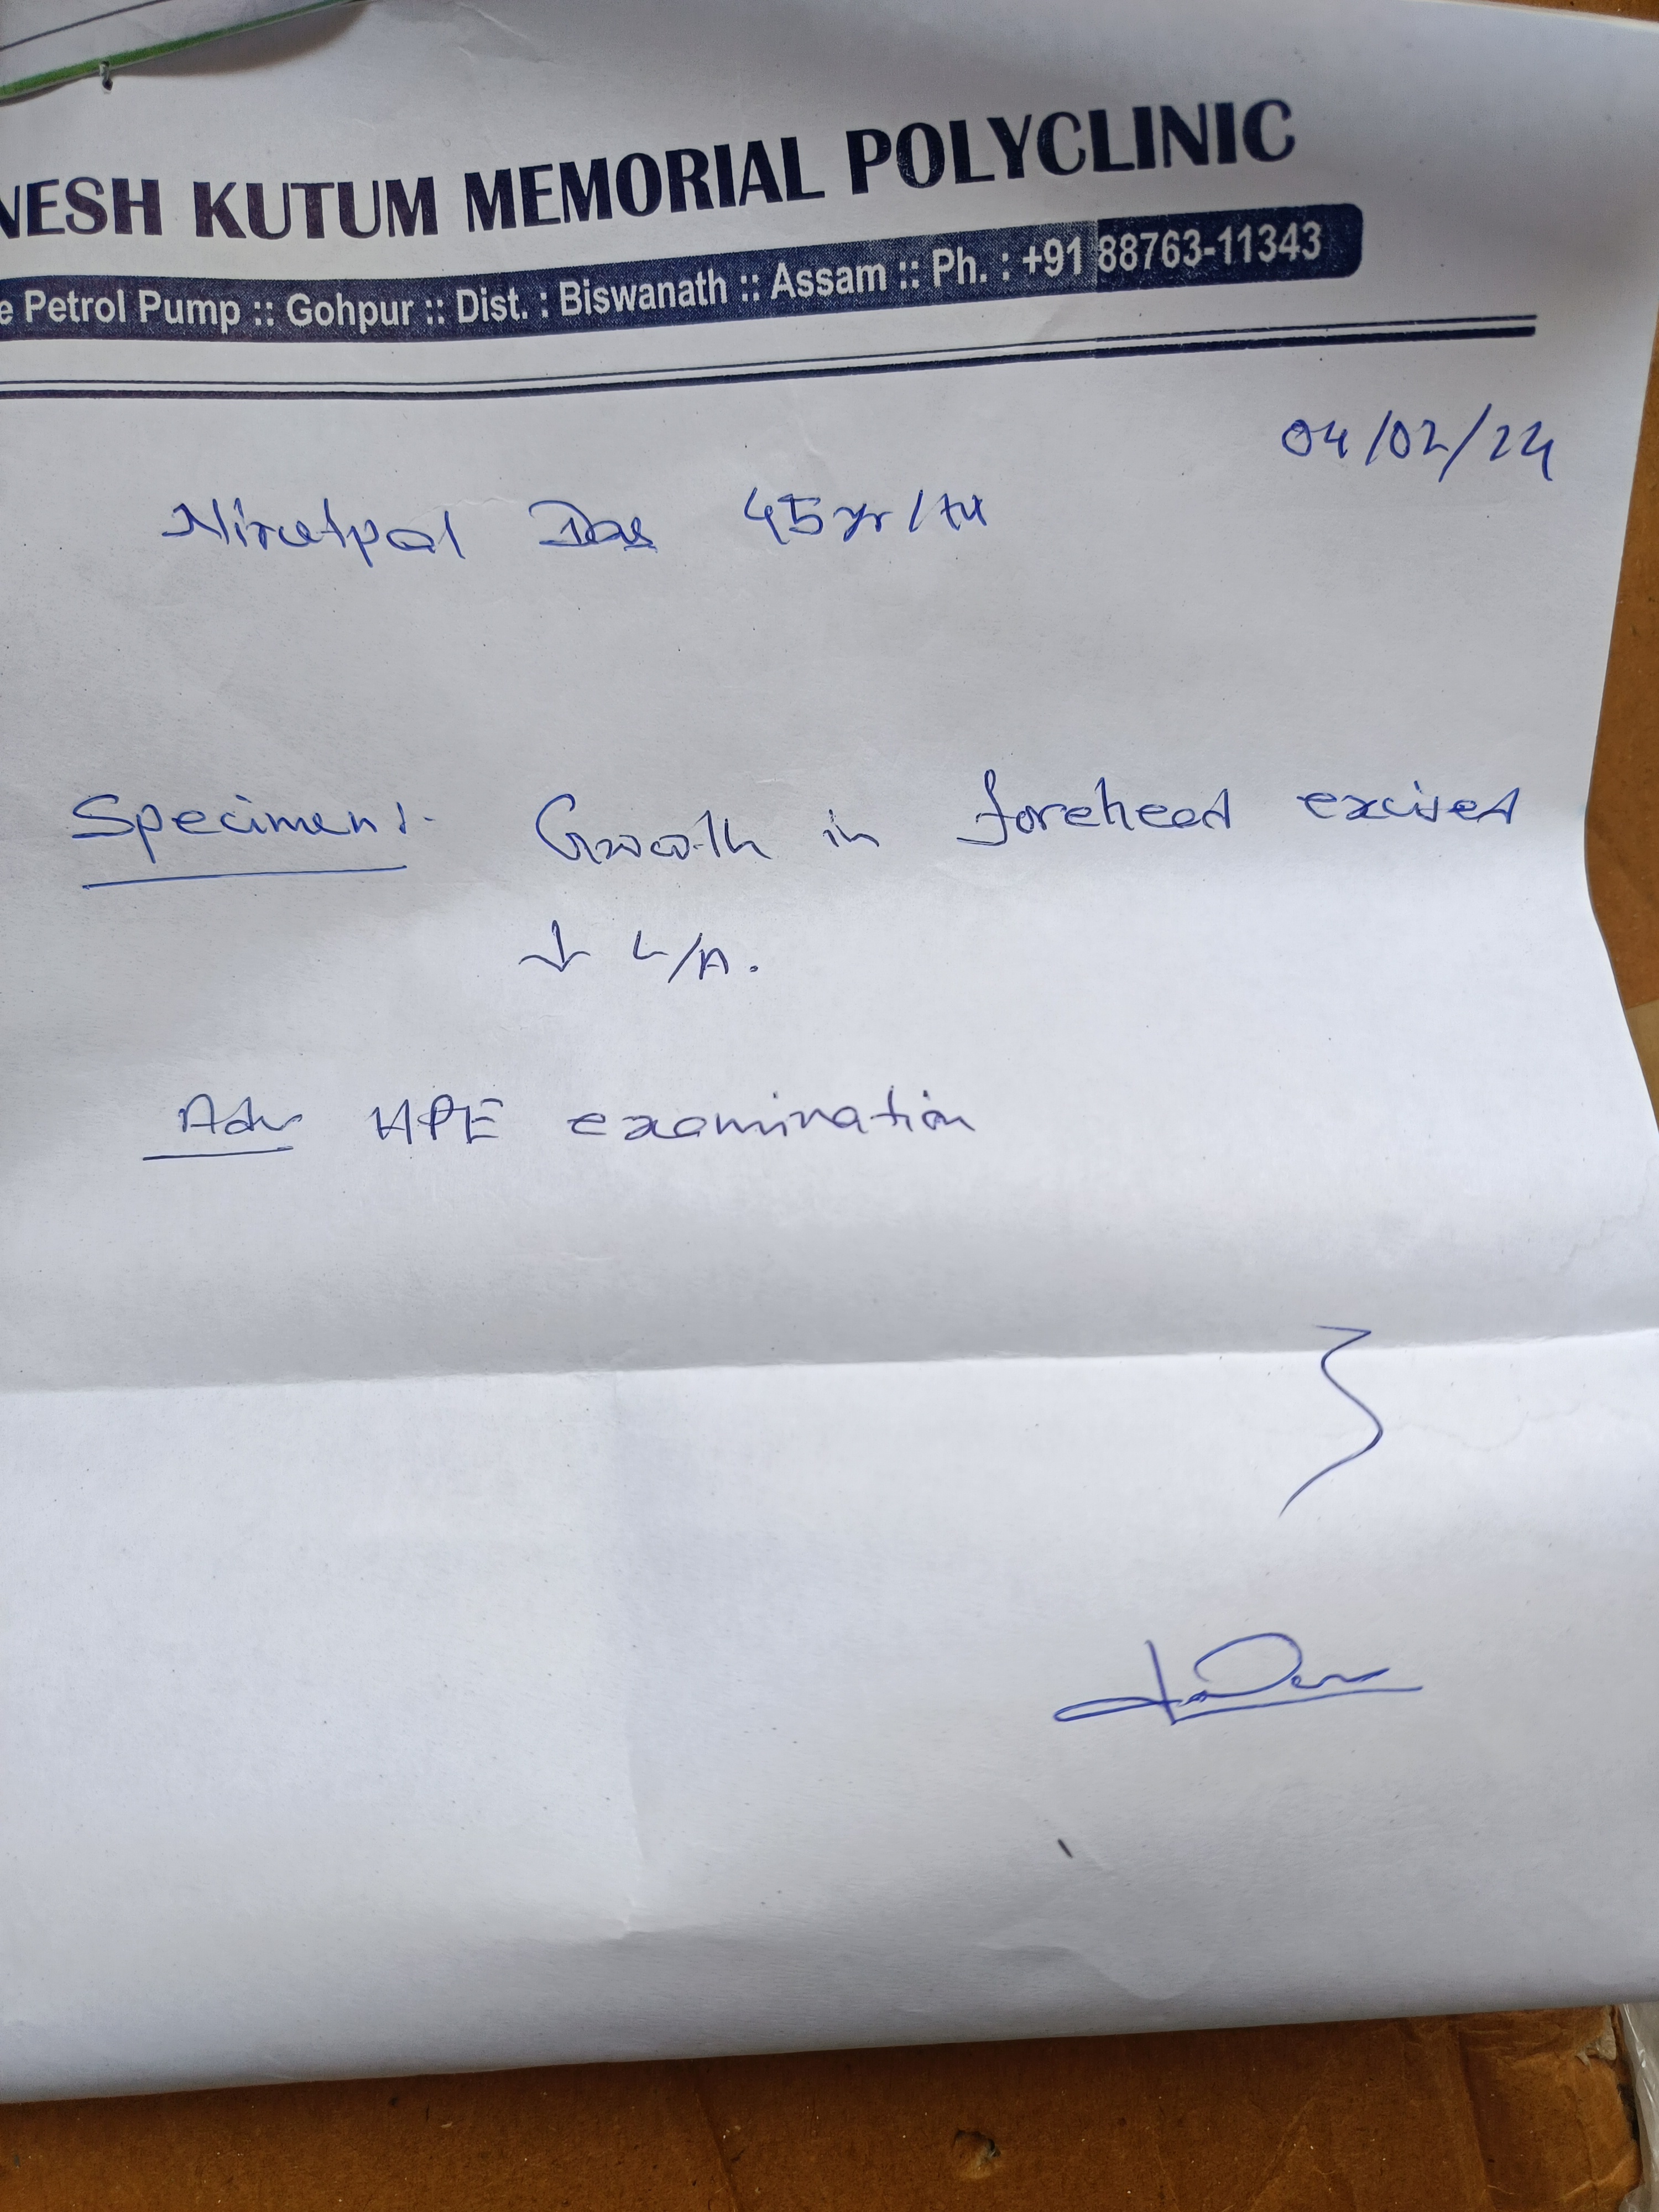 NESH KUTUM MEMORIAL POLYCLINIC
e Petrol Pump :: Gohpur :: Dist. : Biswanath :: Assam :: Ph. : +91 88763-11343
04/02/24
Das 45 yr/M
Specimen:- Growth in forehead excised
↓ L/A.
Adv HPE examination